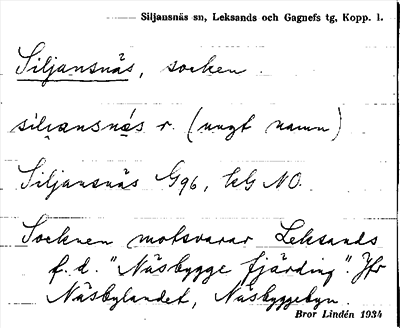 Siljansnäs sn, Leksands och Gagnefs tg, Kopp. l.
Siljansnäs, socken.
silransnä́s r. (ungt namn)
Siljansnäs G96, kG NO.
Socknen motsvarar Leksands
f. d. "Näsbygge fjärding". Jfr
Näsbylandet, Näsbyggebyn.
Bror Lindén 1934